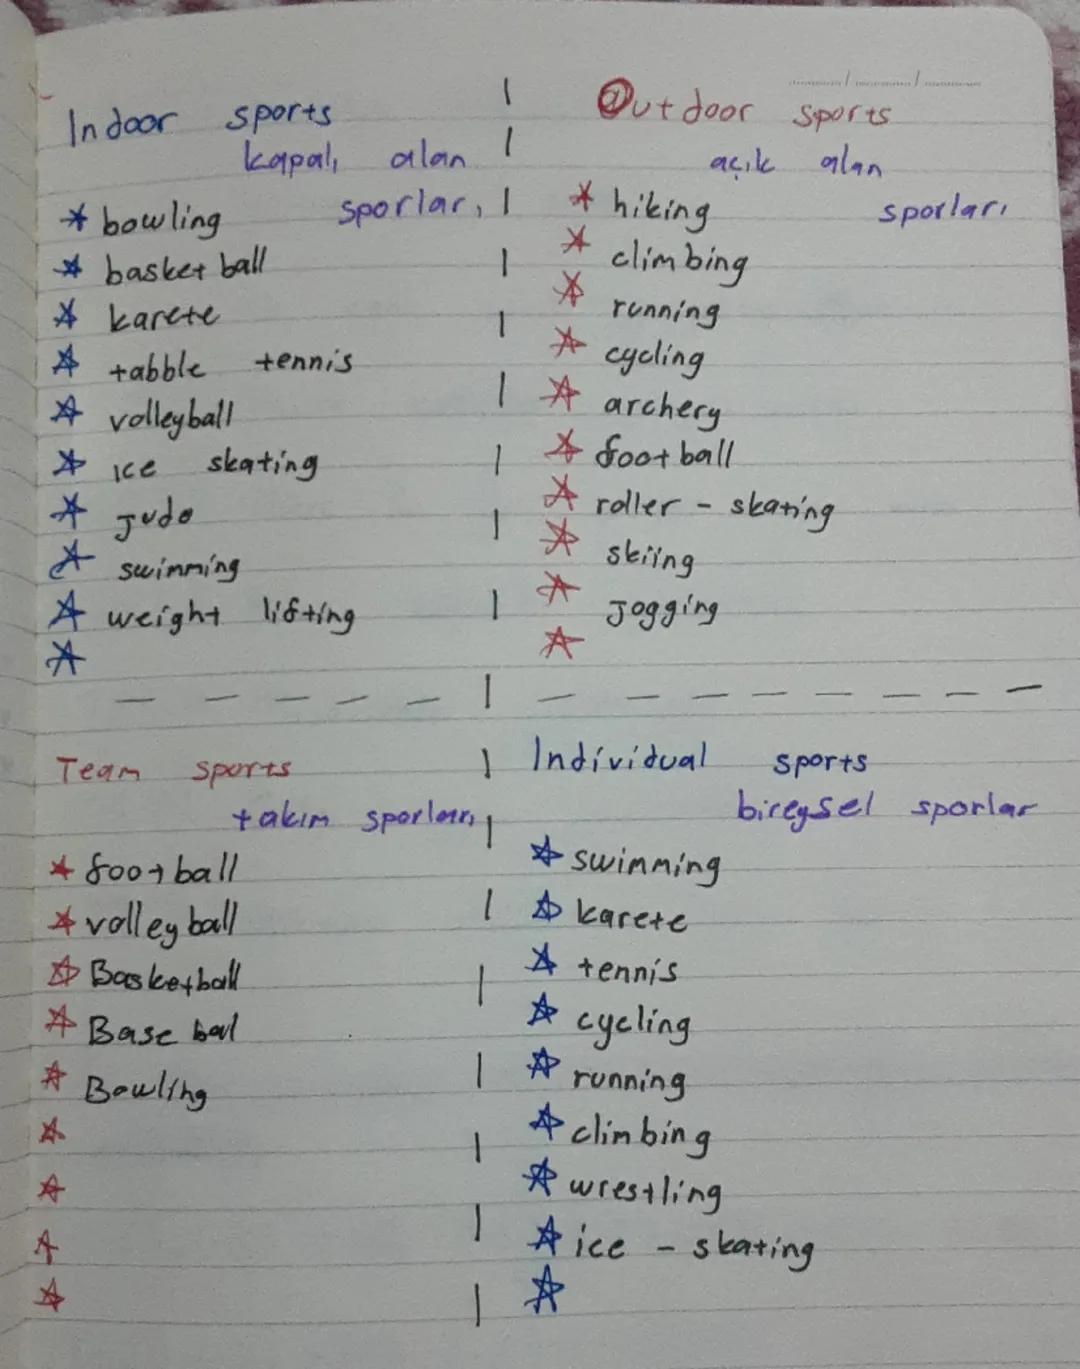 Indoor sports
kapalı alan
sporları
* bowling
* basketball
* karete
* tabble tennis
* volleyball
* ice skating
* Judo
* swimming
* weight lifting
*
Outdoor sports
açık alan
sporları
* hiking
* climbing
* running
* cycling
* archery
* football
* roller - skating
* skiing
* Jogging
*
Team sports
takım sporları
* football
* volleyball
* Basketball
* Base bal
* Bowling
*
*
*
*
Individual sports
bireysel sporlar
* swimming
* karete
* tennis
* cycling
* running
* climbing
* wrestling
* ice - skating
*